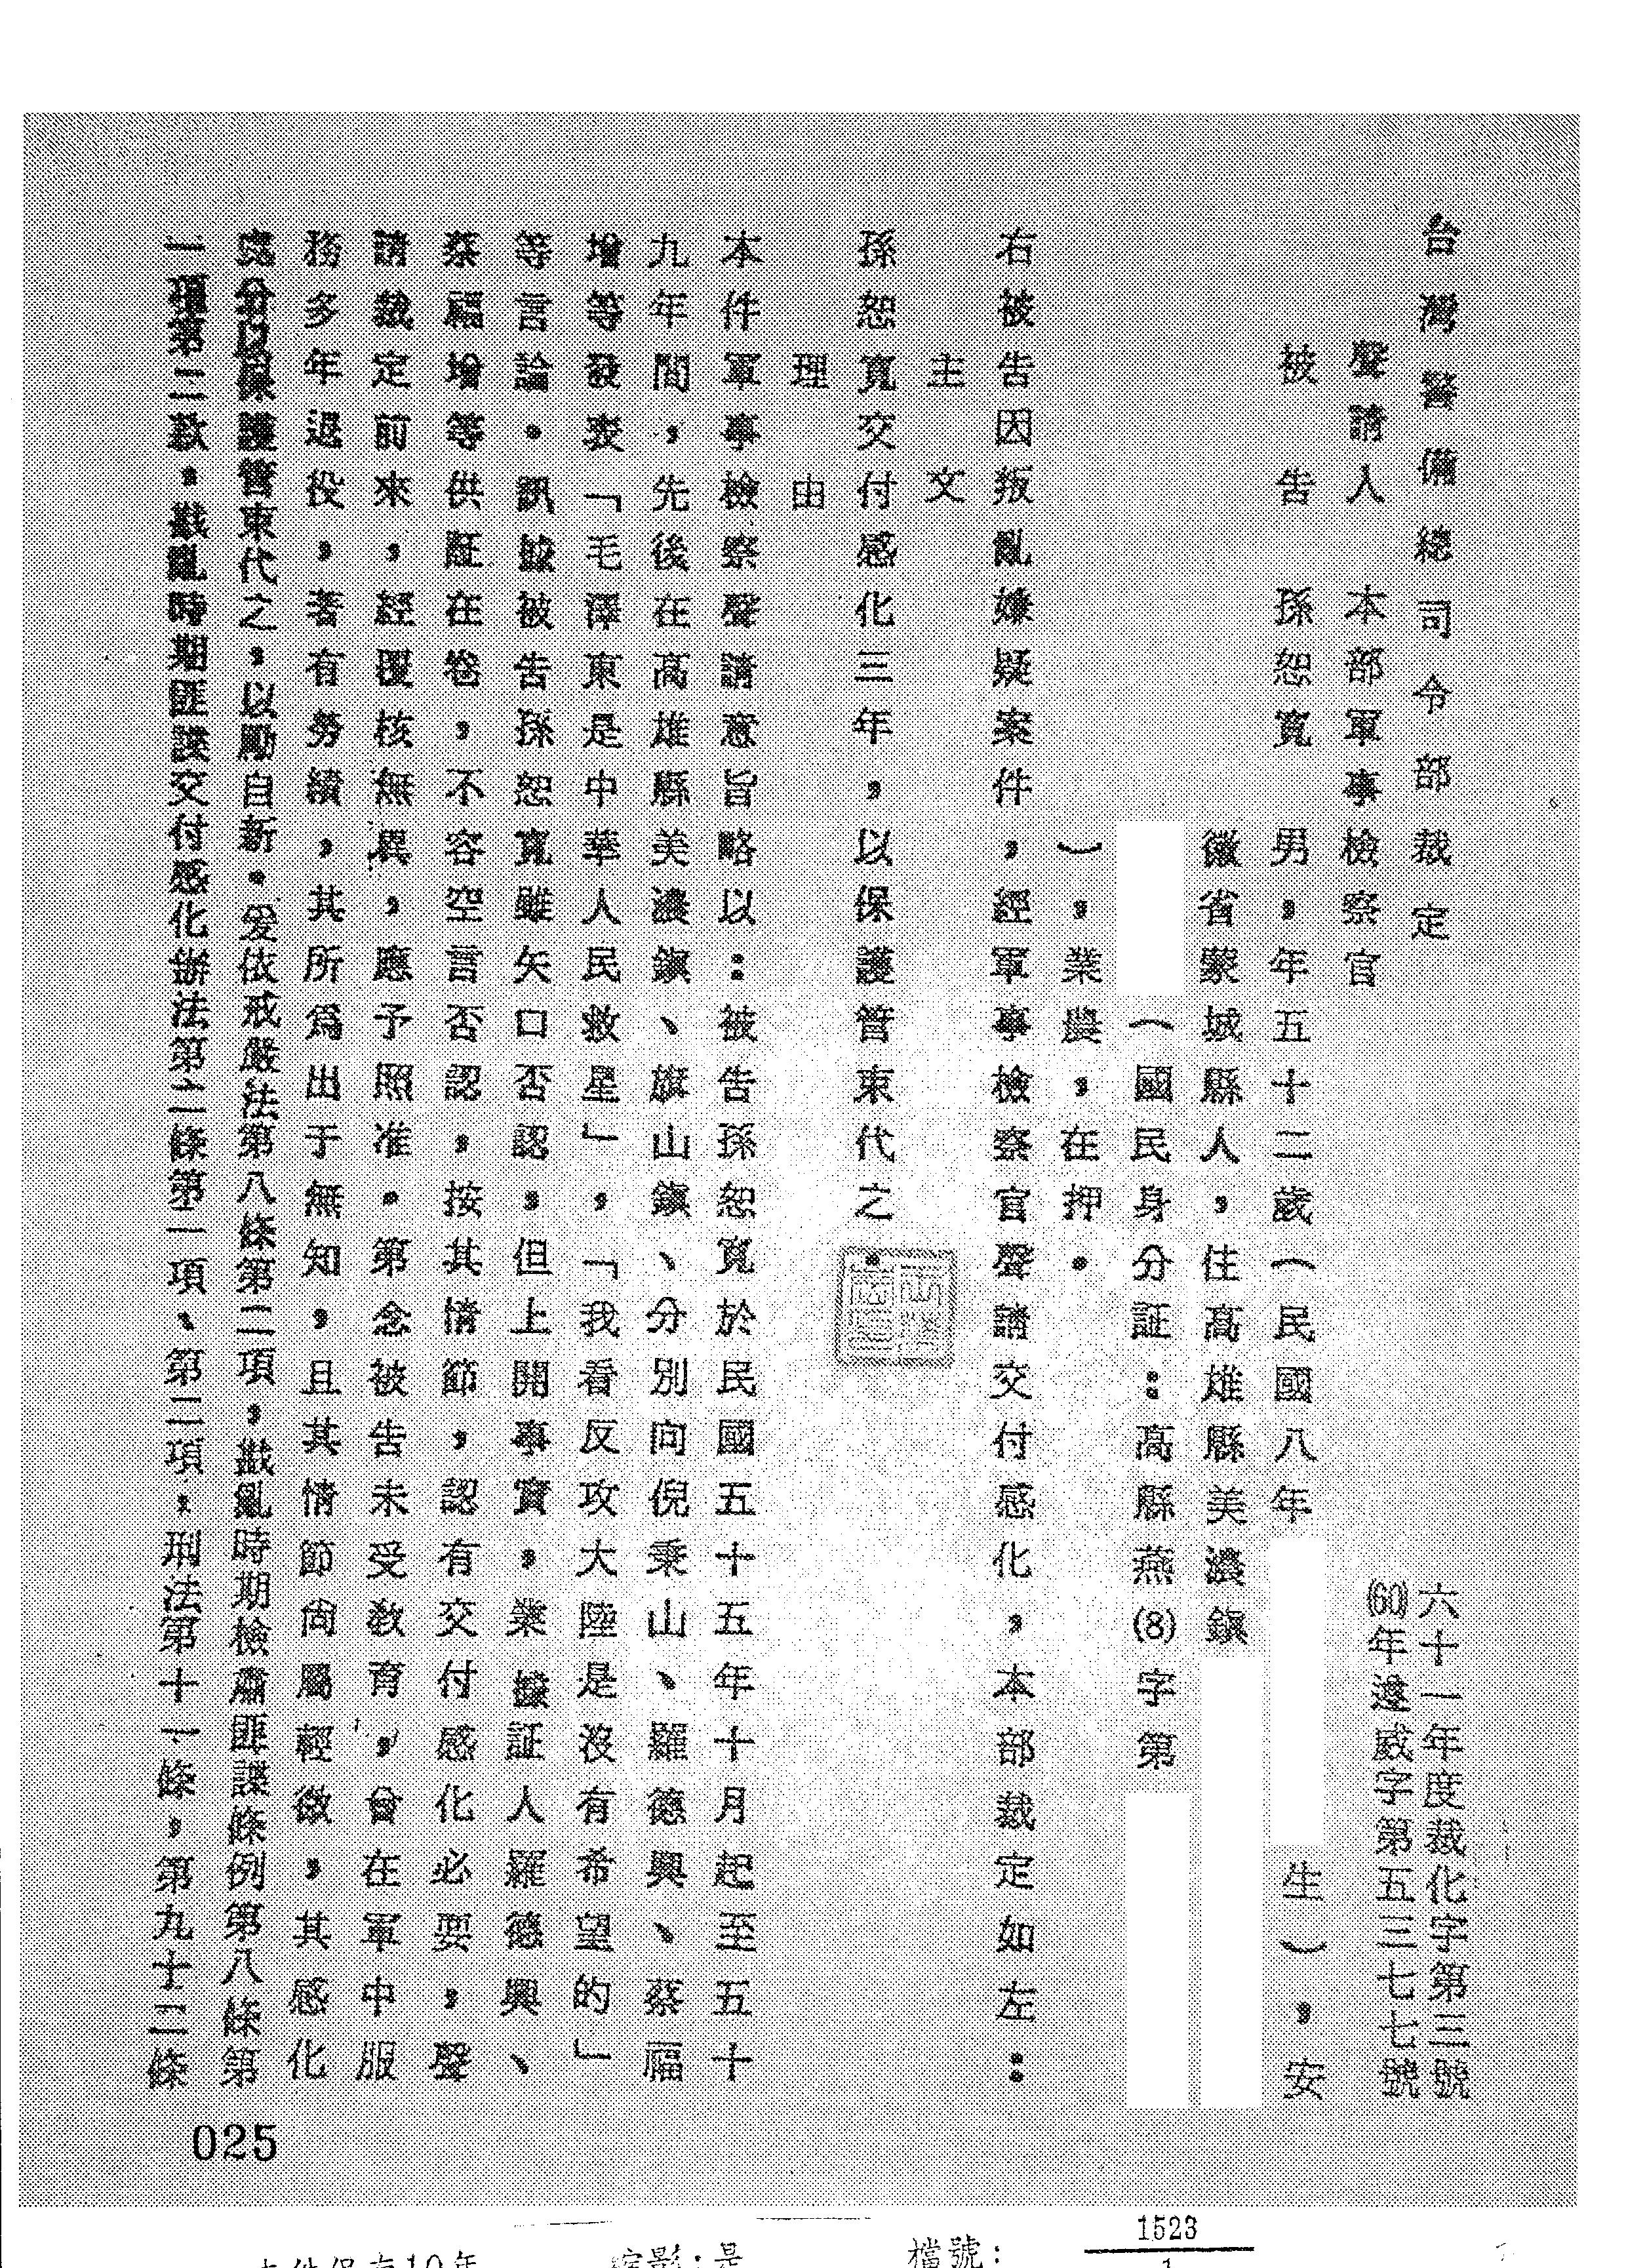 台灣警備總司令部裁定
六十一年度裁化字第三號
(60)年違威字第五三七七號
聲請人　本部軍事檢察官
被告　孫恕寬　男，年五十二歲（民國八年　生），安
徽省蒙城縣人，住高雄縣美濃鎮
（國民身分証：高縣燕(8)字第
），業農，在押。
右被告因叛亂嫌疑案件，經軍事檢察官聲請交付感化，本部裁定如左：
主文
孫恕寬交付感化三年，以保護管束代之。
理由
本件軍事檢察聲請意旨略以：被告孫恕寬於民國五十五年十月起至五十
九年間，先後在高雄縣美濃鎮、旗山鎮、分別向倪秉山、羅德興、蔡福
增等發表「毛澤東是中華人民救星」，「我看反攻大陸是沒有希望的」
等言論。訊據被告孫恕寬雖矢口否認，但上開事實，業據証人羅德興、
蔡福增等供証在卷，不容空言否認，按其情節，認有交付感化必要，聲
請裁定前來，經覆核無異，應予照准。第念被告未受教育，曾在軍中服
務多年退役，著有勞績，其所為出于無知，且其情節尚屬輕微，其感化
處分以保護管束代之，以勵自新。爰依戒嚴法第八條第二項，戡亂時期檢肅匪諜條例第八條第
一項第二款，戡亂時期匪諜交付感化辦法第二條第一項、第二項，刑法第十一條，第九十二條
025
檔號：1523